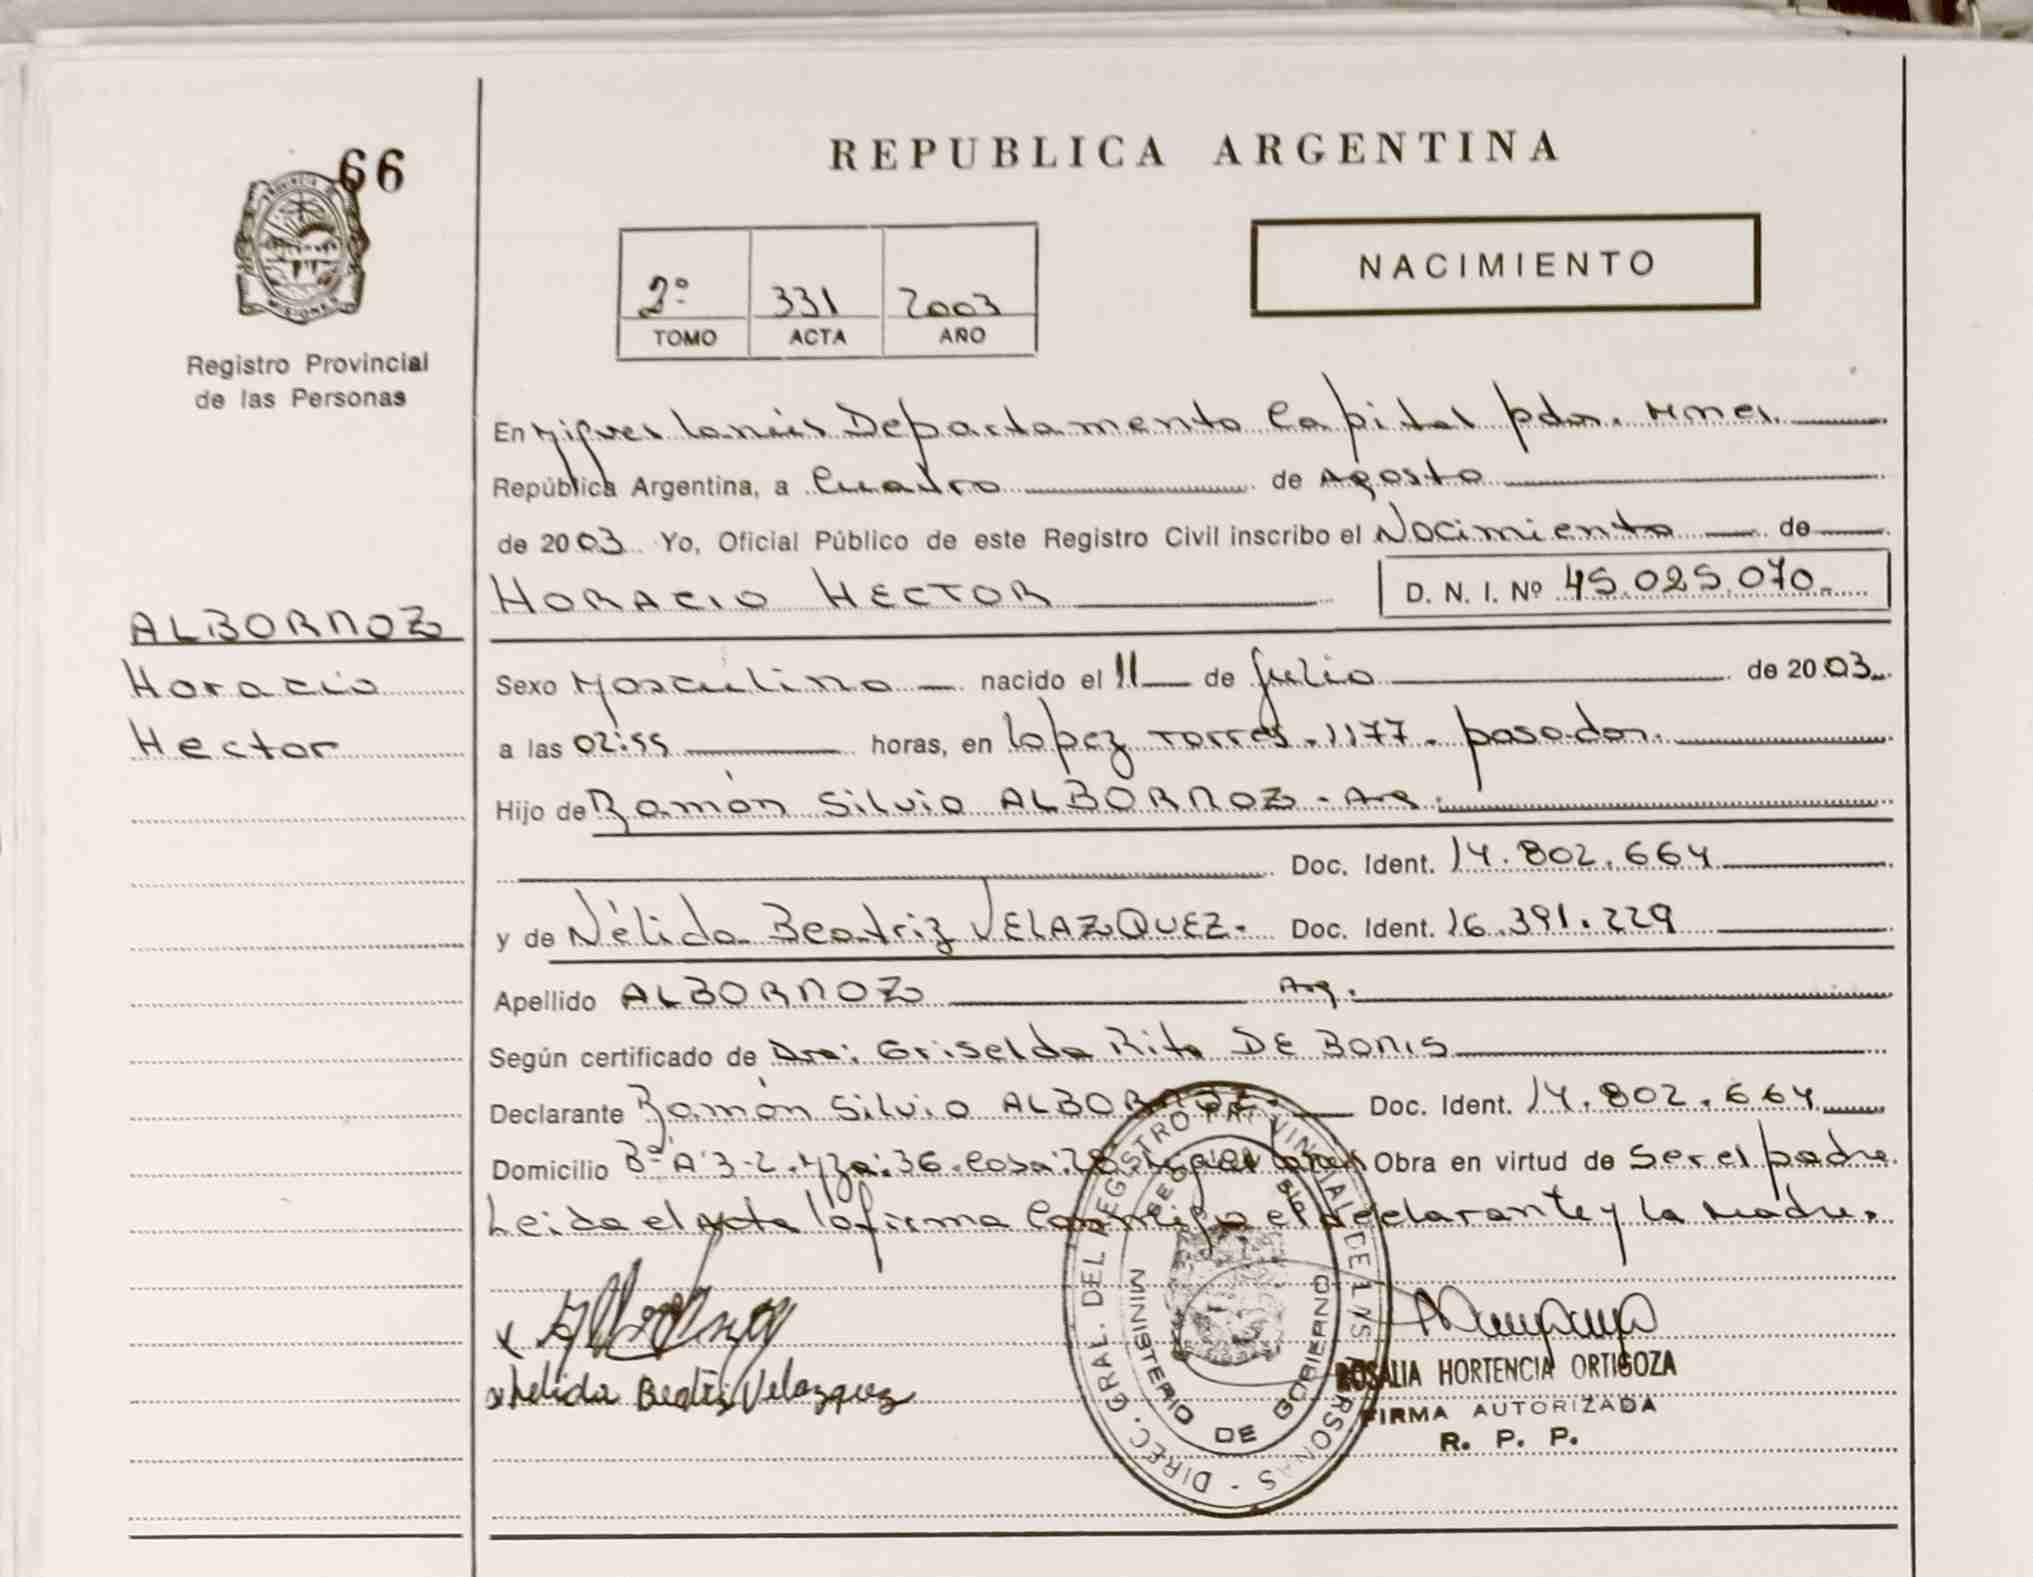 66
REPUBLICA ARGENTINA
PROVINCIA DE MISIONES
Registro Provincial
de las Personas
NACIMIENTO
2º 331 2003
TOMO ACTA AÑO
En Miguel Lanús Departamento Capital pdas. Mnes.
República Argentina, a Cuatro de Agosto
de 2003 Yo, Oficial Público de este Registro Civil inscribo el Nacimiento de
HORACIO HECTOR D. N. I. Nº 45.025.070.
ALBORNOZ
Horacio
Hector
Sexo Masculino nacido el 11 de Julio de 2003
a las 02:55 horas, en Lopez Torres. 1177. posadas.
Hijo de Ramón Silvio ALBORNOZ - Arg.
Doc. Ident. 14.802.664
y de Nélida Beatriz VELAZQUEZ. Doc. Ident. 16.391.229
Apellido ALBORNOZ Arg.
Según certificado de Dra: Griselda Rita DE BONIS
Declarante Ramón Silvio ALBORNOZ. Doc. Ident. 14.802.664
Domicilio Bº A 3-2. Mza: 36. Casa: 28. Miguel Lanús Obra en virtud de Ser el padre
Leida el Acta la firma Conmigo el declarante y la Madre.
x Nelida Beatriz Velazquez
DIREC. GRAL. DEL REGISTRO PROVINCIAL DE LAS PERSONAS -
MINISTERIO DE GOBIERNO
ROSALIA HORTENCIA ORTIGOZA
FIRMA AUTORIZADA
R. P. P.